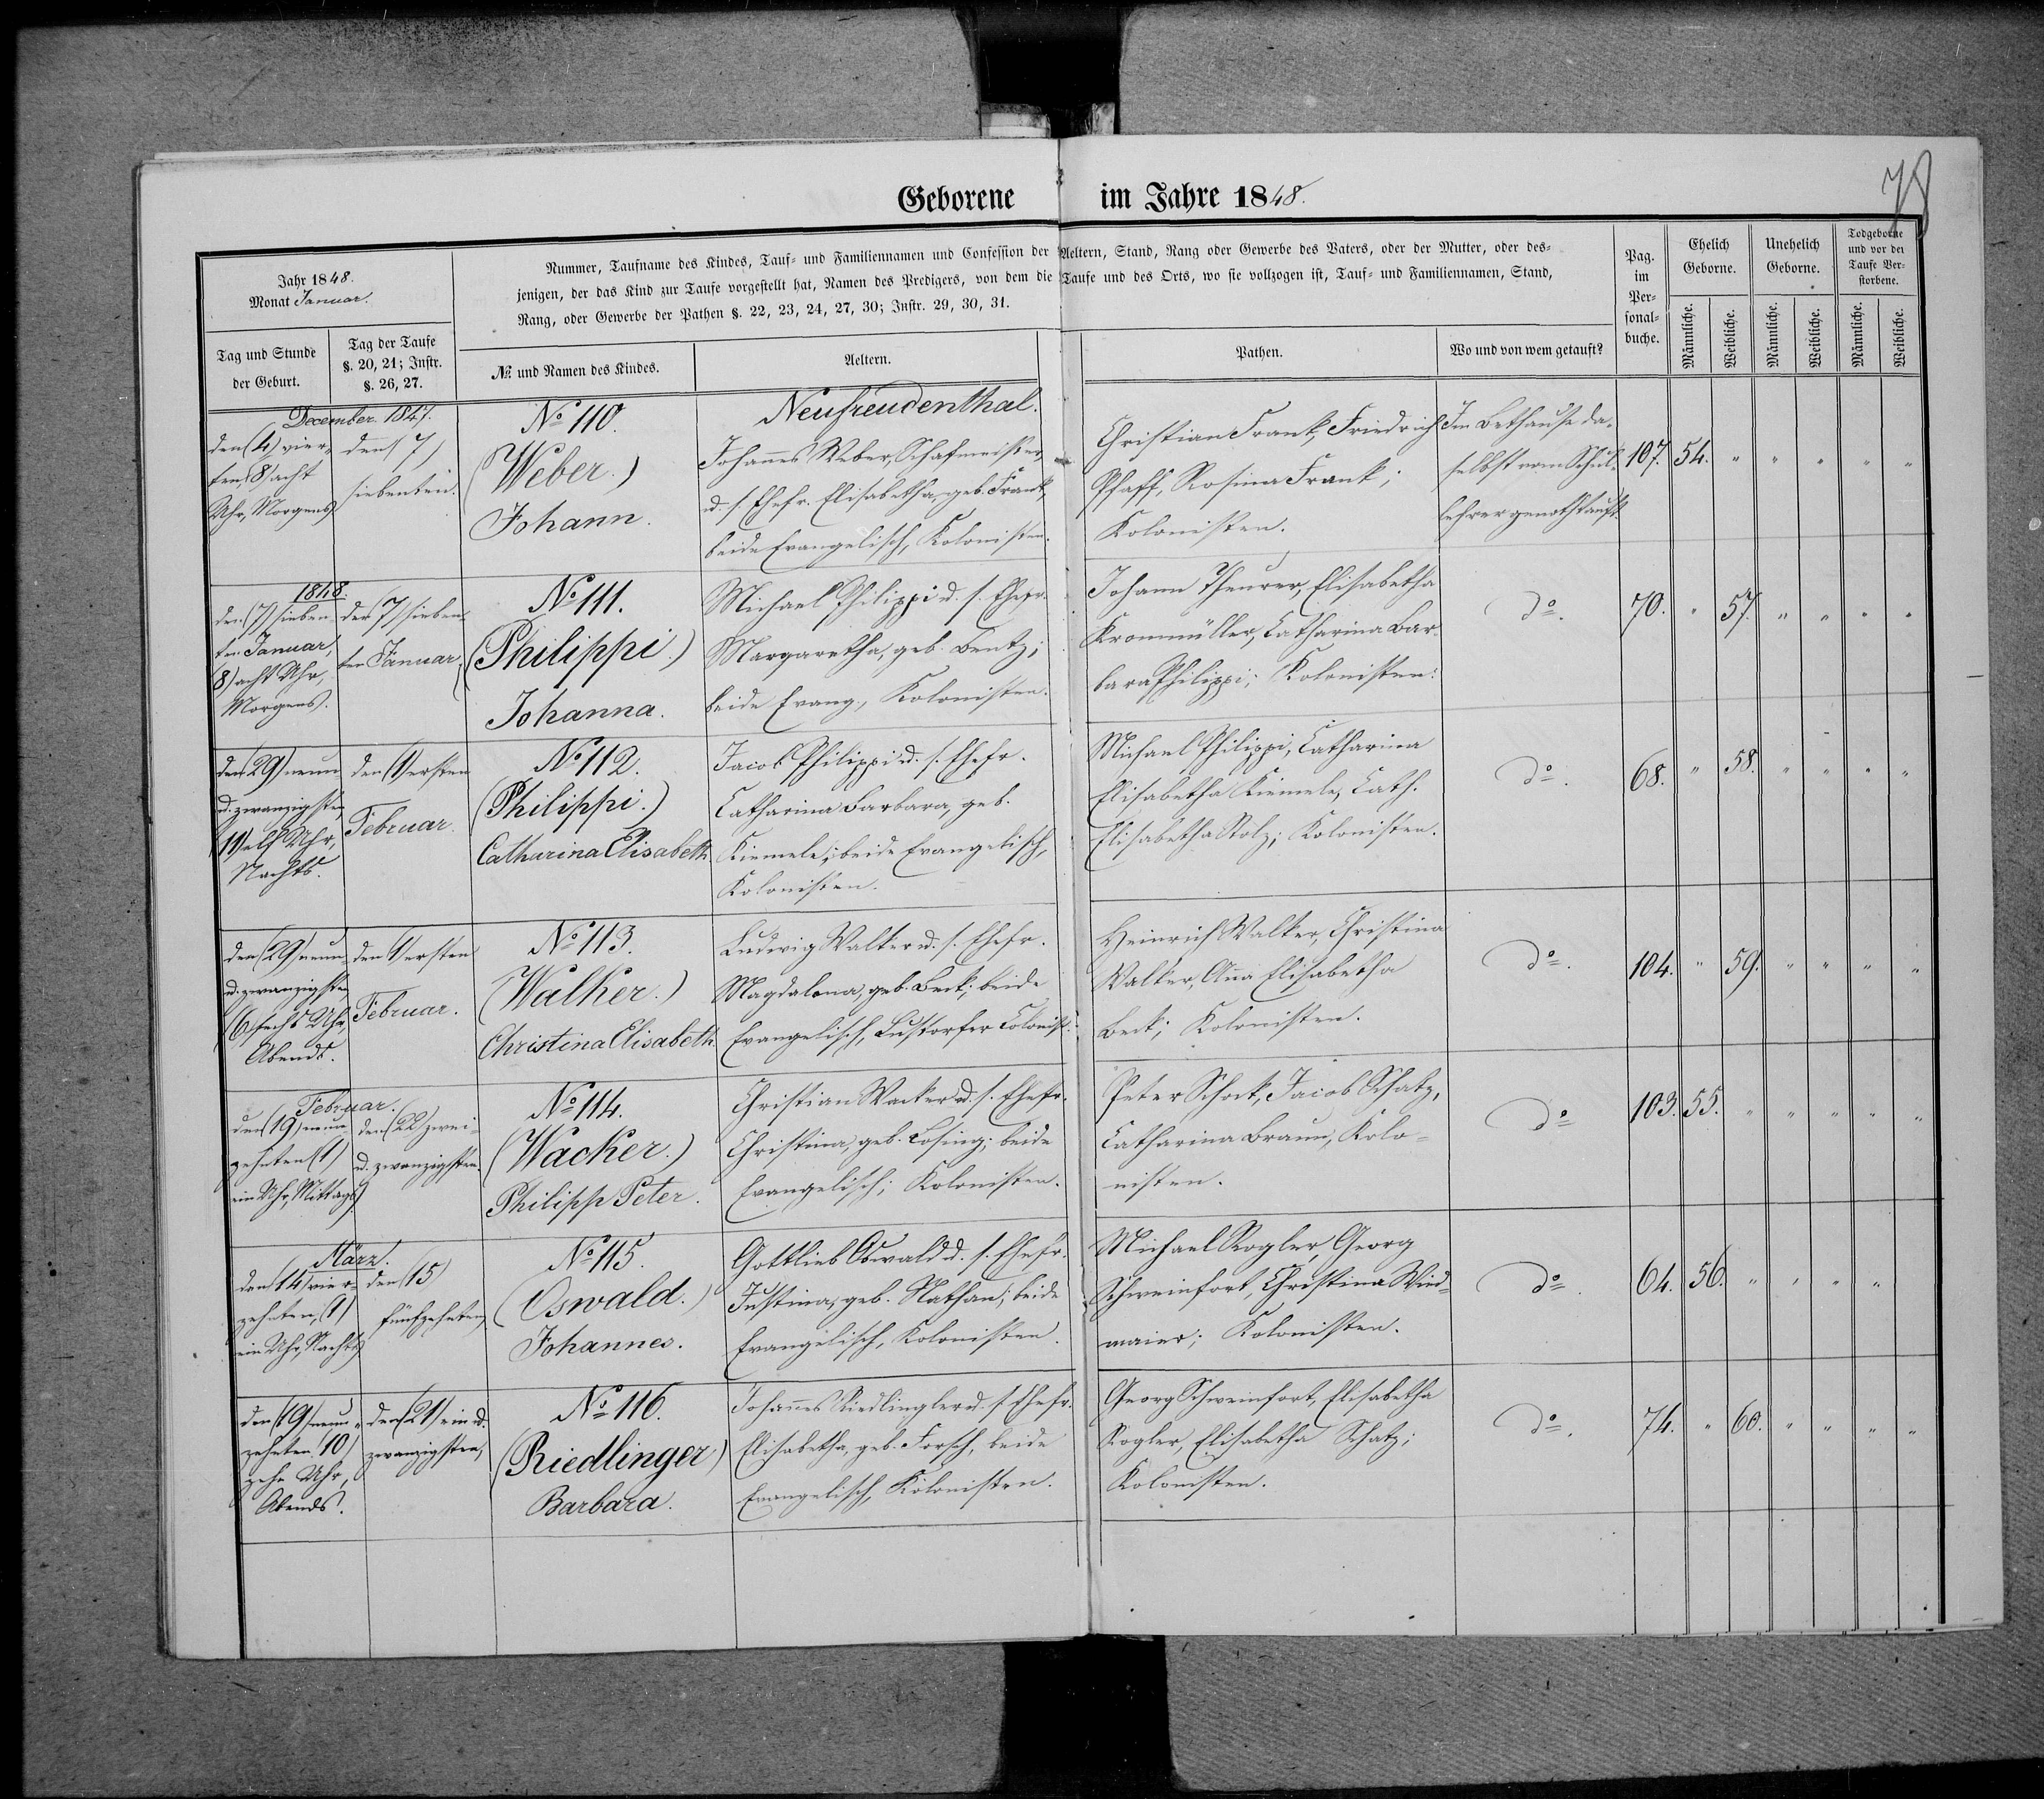 78
Geborene im Jahre 1848.
Jahr 1848.
Monat Januar.
Nummer, Taufname des Kindes, Tauf- und Familiennamen und Confession der Aeltern, Stand, Rang oder Gewerbe des Vaters, oder der Mutter, oder des-
jenigen, der das Kind zur Taufe vorgestellt hat, Namen des Predigers, von dem die Taufe und des Orts, wo sie vollzogen ist, Tauf- und Familiennamen, Stand,
Rang, oder Gewerbe der Pathen §. 22, 23, 24, 27, 30; Instr. 29, 30, 31.
Pag. im Per-sonal-buche.
Ehelich Geborne.
Unehelich Geborne.
Todgeborne und vor der Taufe Ver-storbene.
Tag und Stunde der Geburt.
Tag der Taufe §. 20, 21; Instr. §. 26, 27.
No. und Namen des Kindes.
Aeltern.
Pathen.
Wo und von wem getauft?
Männliche. Weibliche. Männliche. Weibliche. Männliche. Weibliche.
December. 1847.
den (4) vier-
ten, 8) acht
Uhr, Morgens
den (7)
siebenten.
No 110.
(Weber.)
Johann.
Neufreudenthal.
Johannes Weber, Schafmeister,
u. s. Ehefr. Elisabetha, geb. Frank,
beide Evangelisch, Kolonisten.
Christian Frank, Friedrich
Pfaff, Rosina Frank;
Kolonisten.
Im Bethause da-
selbst vom Schul-
lehrer genothtauft.
107. 54. " " " " "
1848.
den (7) sieben-
ten Januar,
8) acht Uhr,
Morgens.
den 7) sieben-
ten Januar.
No 111.
(Philippi.)
Johanna.
Michael Philippi u. s. Ehefr.
Margaretha, geb. Bentz;
beide Evang., Kolonisten.
Johann Theurer, Elisabetha
Krommüller, Catharina Bar-
bara Philippi; Kolonisten.
do.
70. " 57. " " " "
den 29) neun
u. zwanzigsten
11) elf Uhr,
Nachts.
den 1) ersten
Februar.
No 112.
(Philippi.)
Catharina Elisabeth.
Jacob Philippi u. s. Ehefr.
Catharina Barbara, geb.
Kiemele; beide Evangelisch,
Kolonisten.
Michael Philippi, Catharina
Elisabetha Kiemele, Cath.
Elisabetha Stolz; Kolonisten.
do.
68. " 58. " " " "
den (29) neun-
u. zwanzigsten
(6) sechs Uhr,
Abends.
den 1) ersten
Februar.
No 113.
(Walker.)
Christina Elisabeth.
Ludwig Walker u. s. Ehefr.
Magdalena, geb. Beck; beide
Evangelisch, Lustorfer Colonist.
Heinrich Walker, Christina
Walker, Anna Elisabetha
Beck; Kolonisten.
do.
104. " 59. " " " "
Februar.
den (19) neun-
zehnten (1)
ein Uhr, Mittags)
den (22) zwei-
u. zwanzigsten.
No 114.
(Wacker.)
Philipp Peter.
Christian Wacker u. s. Ehefr.
Christina, geb. Losing; beide
Evangelisch; Kolonisten.
Peter Schock, Jacob Schatz,
Catharina Braun, Kolo-
nisten.
do
103. 55. " " " " "
März.
den (14) vier-
zehnten, (1)
ein Uhr, Nachts)
den (15)
fünfzehnten,
No 115.
(Oswald.)
Johannes.
Gottlieb Oswald u. s. Ehefr.
Justina, geb. Nathan; beide
Evangelisch, Kolonisten.
Michael Rogler, Georg
Schweinfort, Christina Wied-
maier; Kolonisten.
do.
64. 56. " " " "
den (19) neun-
zehnten (10)
zehn Uhr,
Abends.
den (21) ein u.
zwanzigsten,
No 116.
(Riedlinger)
Barbara.
Johannes Riedlingler u. s. Ehefr.
Elisabetha, geb. Forsch, beide
Evangelisch, Kolonisten.
Georg Schweinfort, Elisabetha
Rogler, Elisabetha Schatz;
Kolonisten.
do.
74. " 60. " " " "